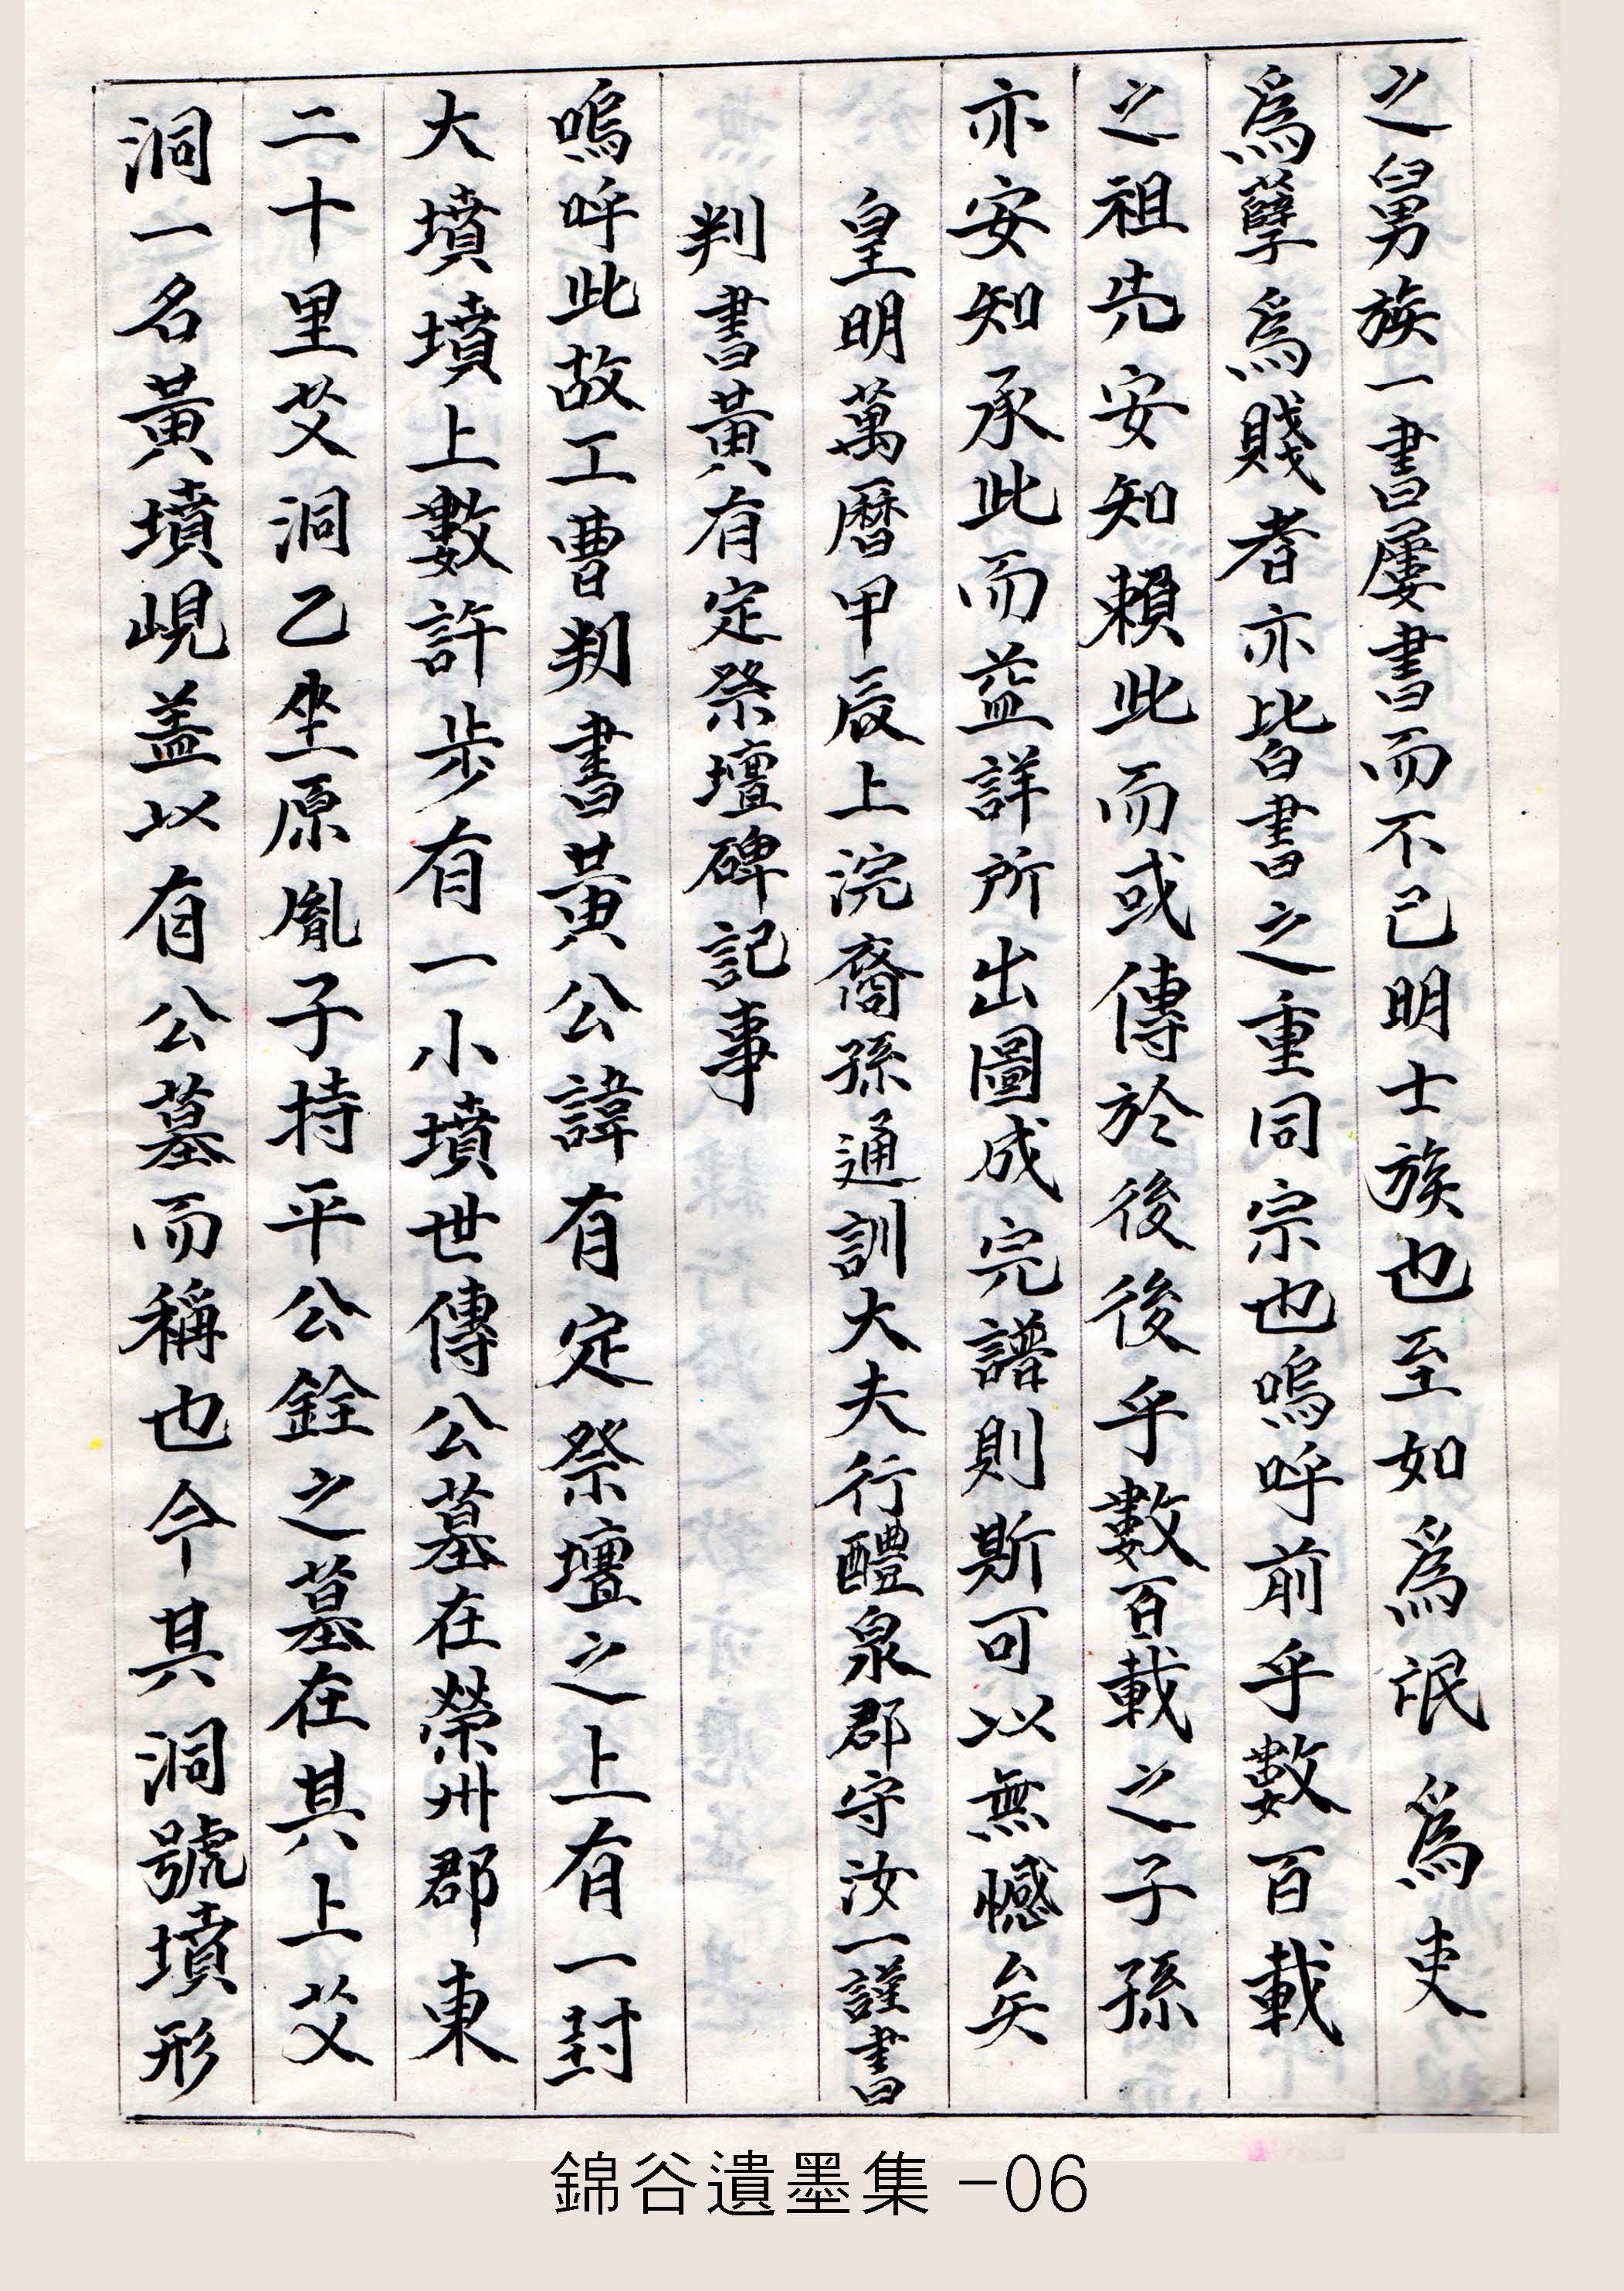 之舅族一書屢書而不已明士族也至如爲氓爲吏
爲孼爲賤者亦皆書之重同宗也嗚呼前乎數百載
之祖先安知賴此而或傳於後後乎數百載之子孫
亦安知承此而益詳所出圖成完譜則斯可以無憾矣
皇明萬曆甲辰上浣裔孫通訓大夫行醴泉郡守汝一謹書
判書黃有定祭壇碑記事
嗚呼此故工曹判書黃公諱有定祭壇之上有一封
大墳墳上數許步有一小墳世傳公墓在榮州郡東
二十里艾洞乙坐原胤子持平公銓之墓在其上艾
洞一名黃墳峴盖以有公墓而稱也今其洞號墳形
錦谷遺墨集 -06